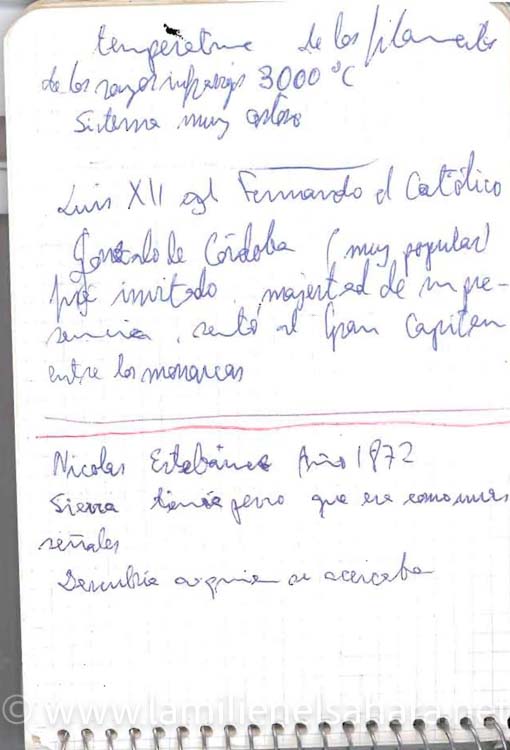 temperatura de los filamentos
de los rayos infrarrojos 3000 °C
Sistema muy costoso
Luis XII y el Fernando el Católico
Gonzalo de Córdoba (muy popular)
fué invitado, majestad de su pre-
sencia, sentó al Gran Capitan
entre los monarcas
Nicolas Estébanez Año 1872
Sierra tenía perro que era como unas
señales
Descubría a quien se acercaba
© www.lamilienelsahara.net